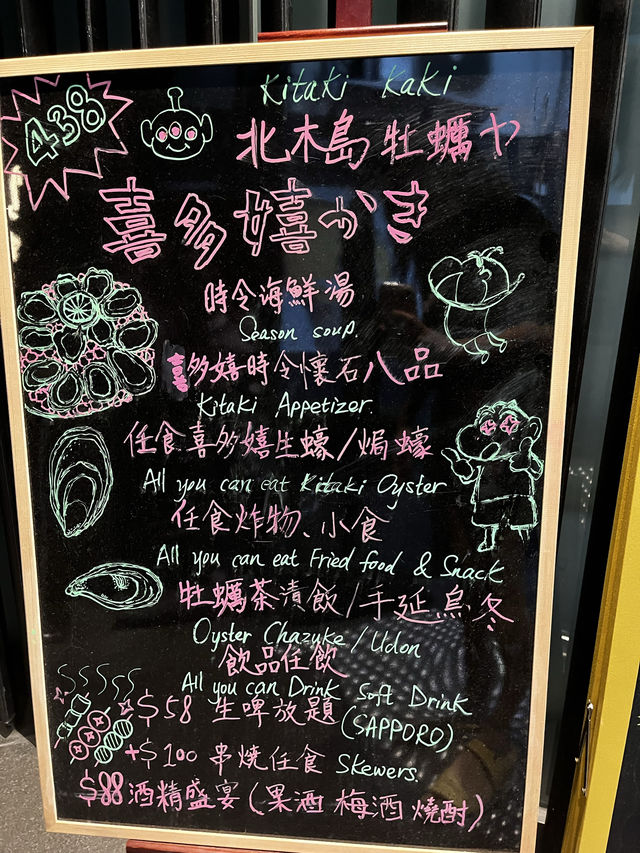 Kitaki Kaki
438
北木島 牡蠣や
喜多嬉かき
時令海鮮湯
Season soup.
喜多嬉時令懷石八品
Kitaki Appetizer.
任食喜多嬉生蠔/焗蠔
All you can eat Kitaki Oyster
任食炸物、小食
All you can eat Fried food & Snack
牡蠣茶漬飯/手延烏冬
Oyster Chazuke / Udon
飲品任飲
All you can Drink Soft Drink
$58 生啤放題 (SAPPORO)
+$100 串燒任食 Skewers.
$88 酒精盛宴 (果酒 梅酒 燒酎)